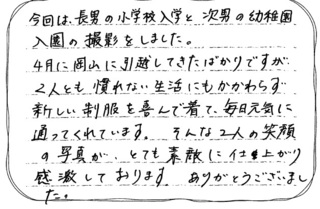 今回は、長男の小学校入学と次男の幼稚園
入園の撮影をしました。
4月に岡山に引越してきたばかりですが
2人とも慣れない生活にもかかわらず
新しい制服を喜んで着て、毎日元気に
通ってくれています。そんな2人の笑顔
の写真が、とても素敵に仕上がり
感激しております。ありがとうございまし
た。